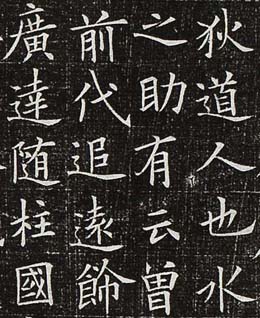 狄道人也水
之助有云曽
前代追逺餙
廣達随柱國